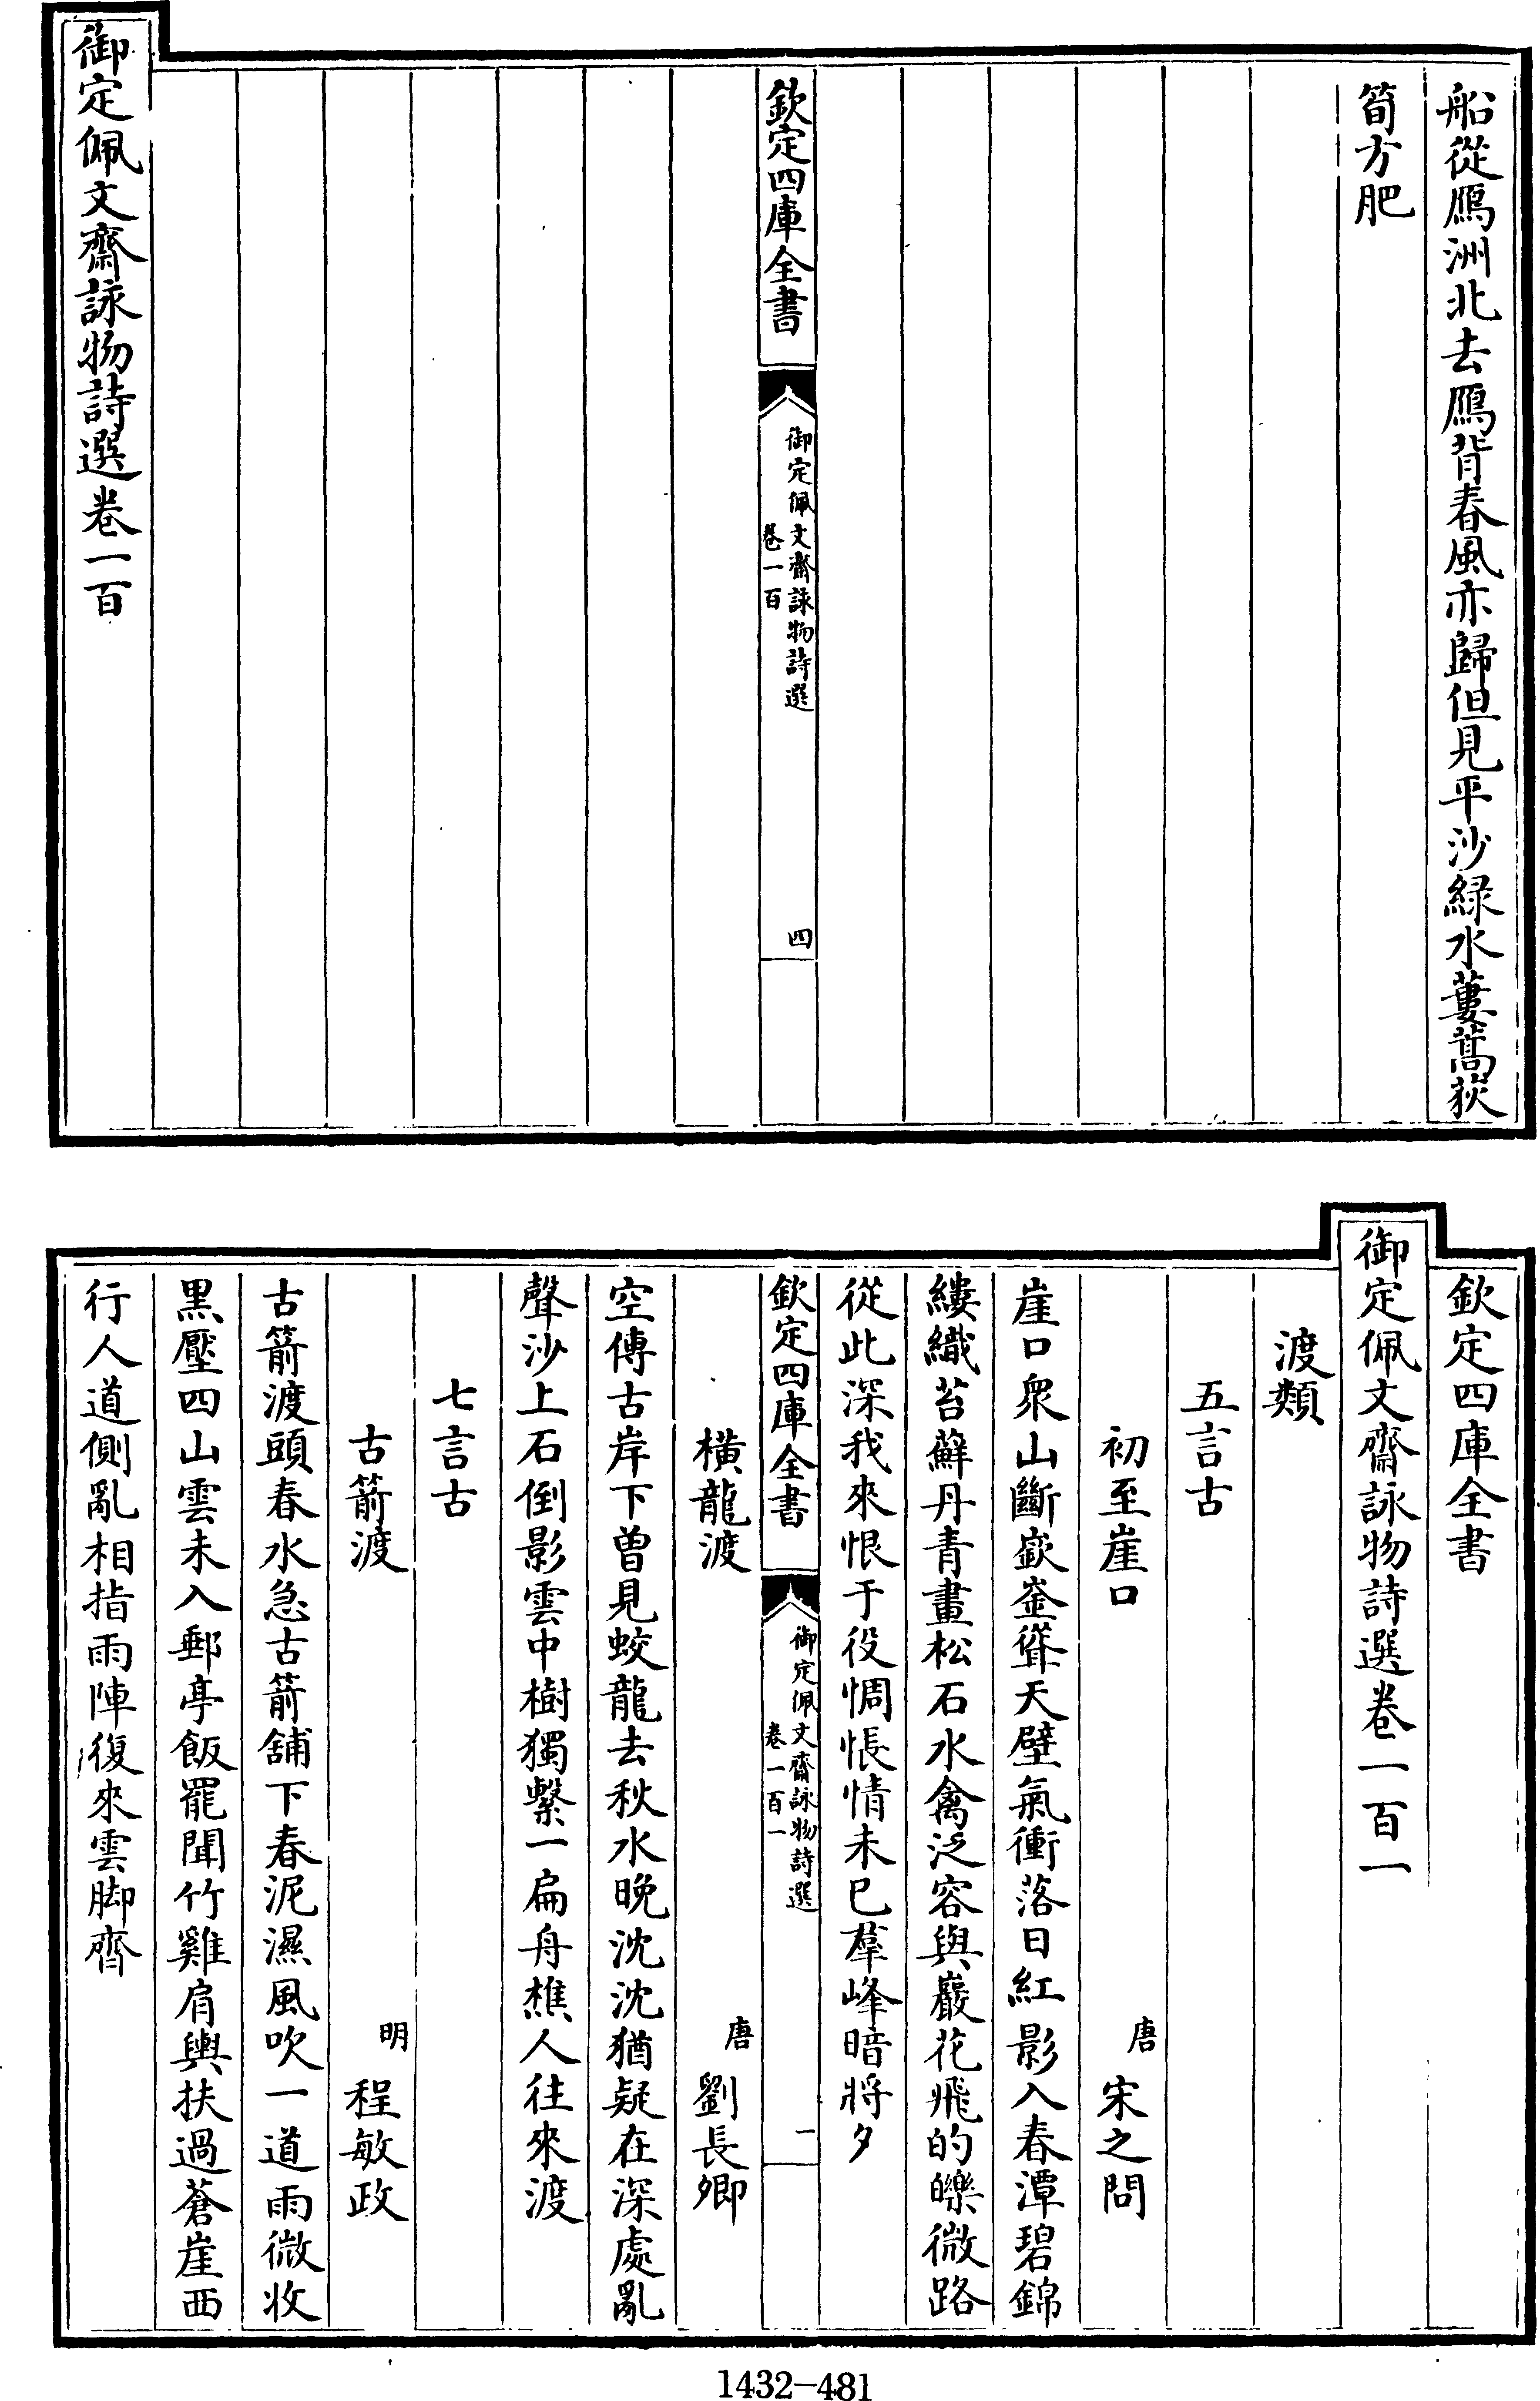 船從鴈洲北去鴈背春風亦歸但見平沙緑水蔞蒿荻
筍方肥
欽定四庫全書
御定佩文齋詠物詩選
卷一百
四
御定佩文齋詠物詩選卷一百
欽定四庫全書
御定佩文齋詠物詩選卷一百一
渡類
五言古
初至崖口
唐 宋之問
崖口衆山斷嶔崟聳天壁氣衝落日紅影入春潭碧錦
縷織苔蘚丹青畫松石水禽泛容與巖花飛的皪微路
從此深我來恨于役惆悵情未已羣峰暗將夕
欽定四庫全書
御定佩文齋詠物詩選
卷一百一
一
橫龍渡
唐 劉長卿
空傳古岸下曽見蛟龍去秋水晚沈沈猶疑在深處亂
聲沙上石倒影雲中樹獨繫一扁舟樵人往來渡
七言古
古箭渡
明 程敏政
古箭渡頭春水急古箭舖下春泥濕風吹一道雨微收
黒壓四山雲未入郵亭飯罷聞竹雞肩輿扶過蒼崖西
行人道側亂相指雨陣復來雲脚齊
1432-481